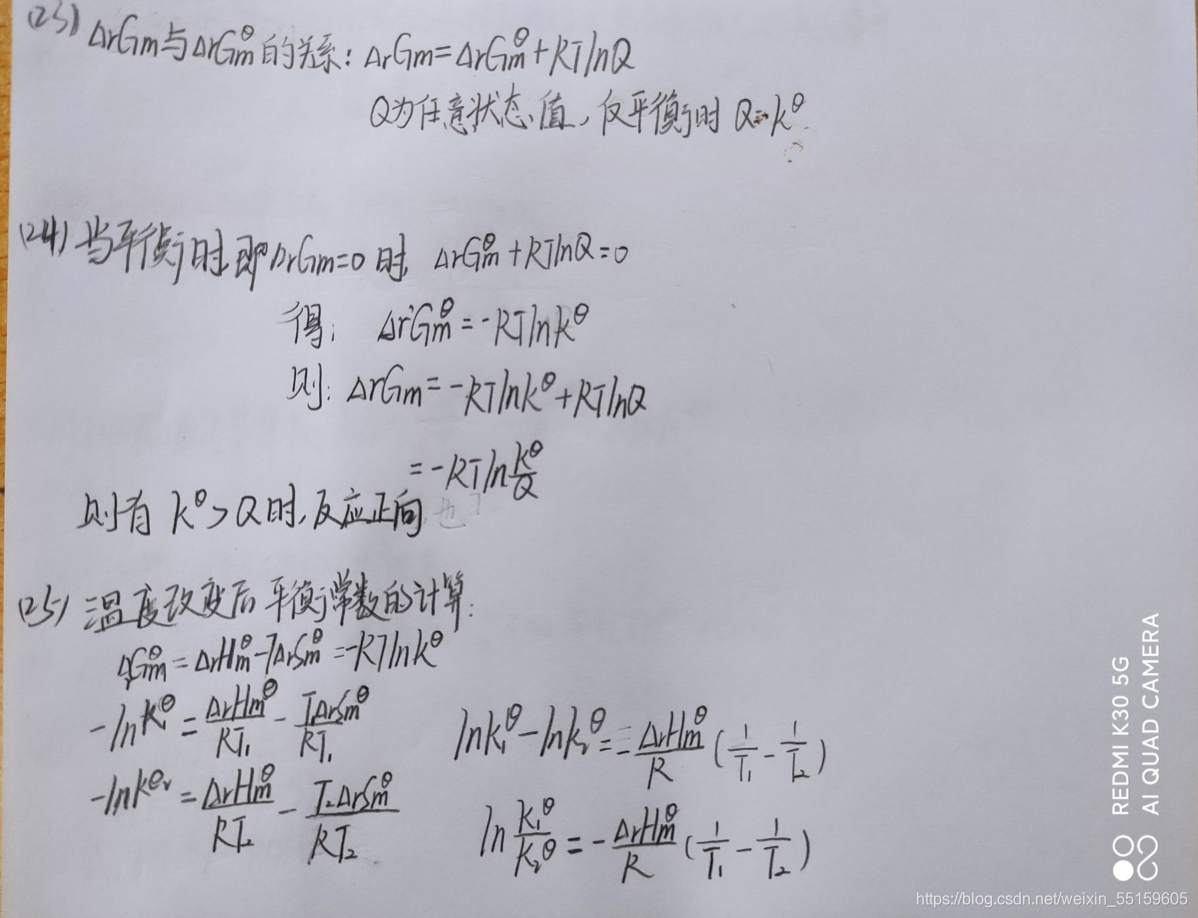 (23) ΔrGm与ΔrGm^θ的关系: ΔrGm=ΔrGm^θ+RTlnQ
Q为任意状态值,仅平衡时Q=K^θ
(24) 当平衡时即ΔrGm=0时, ΔrGm^θ+RTlnQ=0
得: ΔrGm^θ=-RTlnK^θ
则: ΔrGm=-RTlnK^θ+RTlnQ
=-RTln K^θ/Q
则有 K^θ>Q时,反应正向
(25) 温度改变后平衡常数的计算:
ΔrGm^θ=ΔrHm^θ-TΔrSm^θ=-RTlnK^θ
-lnK₁^θ=ΔrHm^θ/RT₁-T₁ΔrSm^θ/RT₁
lnK₁^θ-lnK₂^θ=-ΔrHm^θ/R(1/T₁-1/T₂)
-lnK^θ₂=ΔrHm^θ/RT₂-T₂ΔrSm^θ/RT₂
ln K₁^θ/K₂^θ=-ΔrHm^θ/R(1/T₁-1/T₂)
REDMI K30 5G
AI QUAD CAMERA
https://blog.csdn.net/weixin_55159605